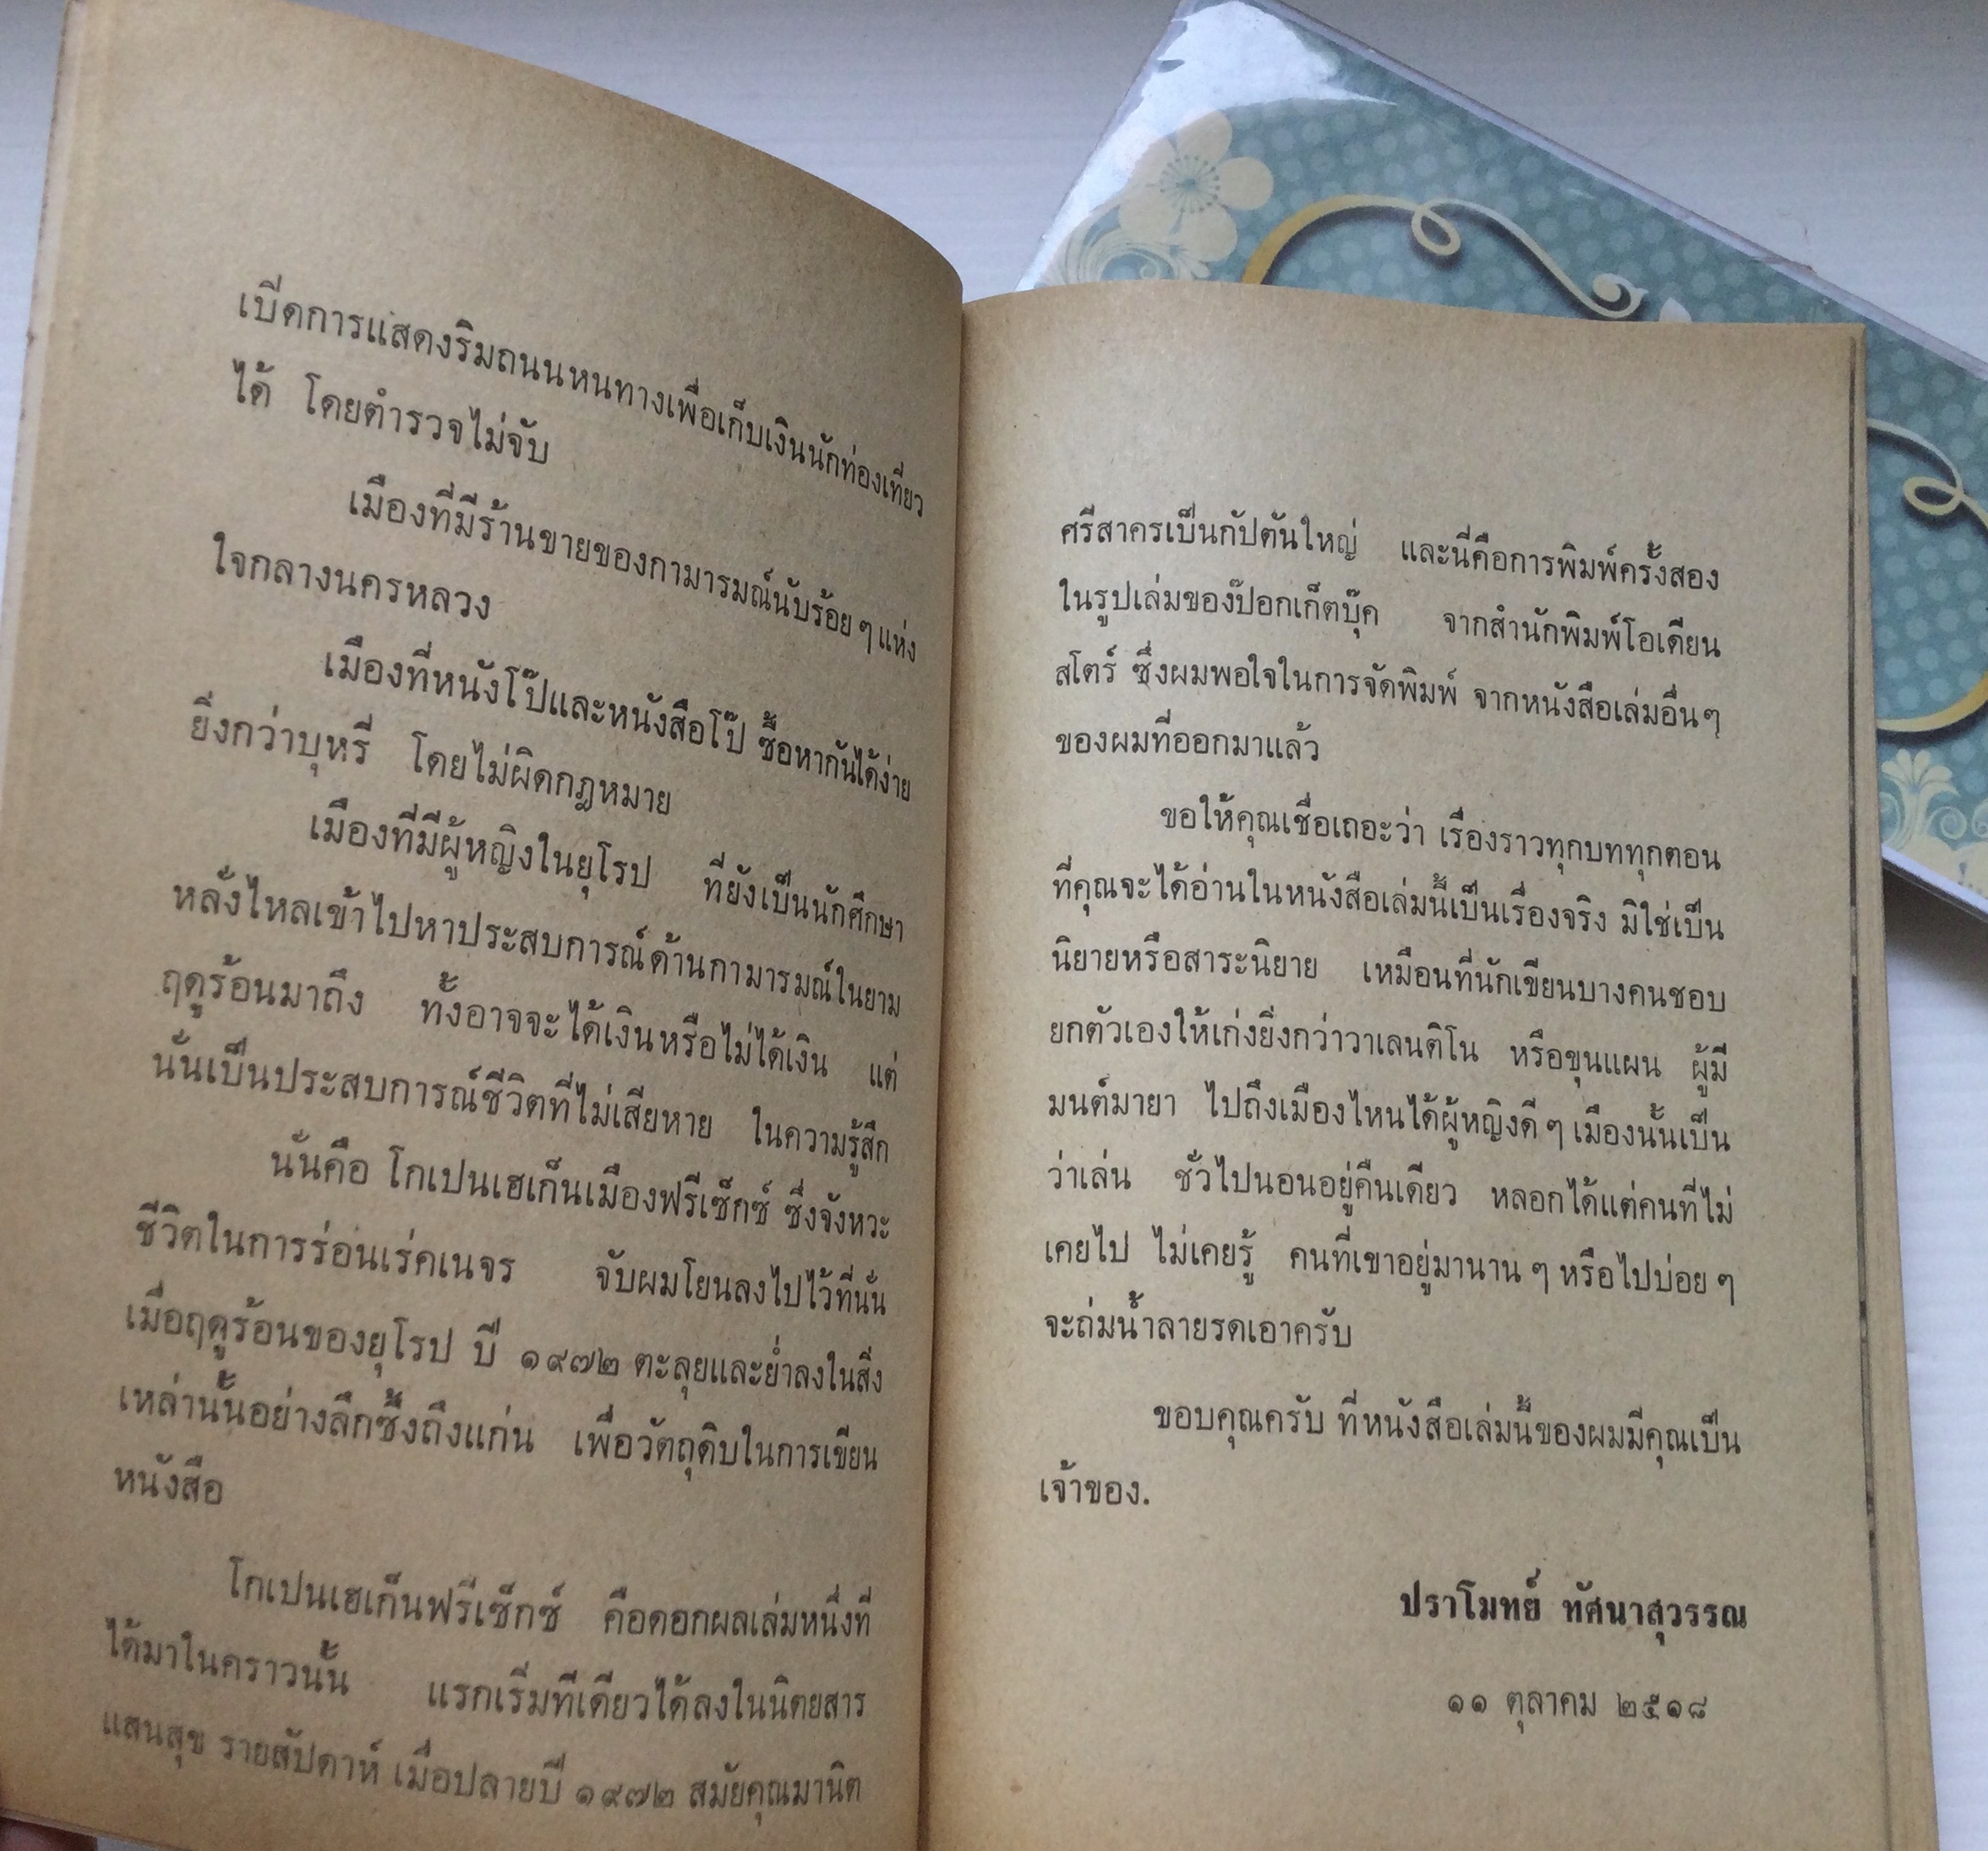 เปิดการแสดงริมถนนหนทางเพื่อเก็บเงินนักท่องเที่ยว
ได้ โดยตำรวจไม่จับ
เมืองที่มีร้านขายของกามารมณ์นับร้อยๆ แห่ง
ใจกลางนครหลวง
เมืองที่หนังโป๊และหนังสือโป๊ ซื้อหากันได้ง่าย
ยิ่งกว่าบุหรี่ โดยไม่ผิดกฎหมาย
เมืองที่มีผู้หญิงในยุโรป ที่ยังเป็นนักศึกษา
หลั่งไหลเข้าไปหาประสบการณ์ด้านกามารมณ์ในยาม
ฤดูร้อนมาถึง ทั้งอาจจะได้เงินหรือไม่ได้เงิน แต่
นั่นเป็นประสบการณ์ชีวิตที่ไม่เสียหาย ในความรู้สึก
นั่นคือ โกเปนเฮเก็นเมืองฟรีเซ็กซ์ ซึ่งจังหวะ
ชีวิตในการร่อนเร่คเนจร จับผมโยนลงไปไว้ที่นั่น
เมื่อฤดูร้อนของยุโรป ปี ๑๙๗๒ ตะลุยและย่ำลงในสิ่ง
เหล่านั้นอย่างลึกซึ้งถึงแก่น เพื่อวัตถุดิบในการเขียน
หนังสือ
โกเปนเฮเก็นฟรีเซ็กซ์ คือดอกผลเล่มหนึ่งที่
ได้มาในคราวนั้น แรกเริ่มทีเดียวได้ลงในนิตยสาร
แสนสุข รายสัปดาห์ เมื่อปลายปี ๑๙๗๒ สมัยคุณมานิต
ศรีสาครเป็นกัปตันใหญ่ และนี่คือการพิมพ์ครั้งสอง
ในรูปเล่มของป๊อกเก็ตบุ๊ค จากสำนักพิมพ์โอเดียน
สโตร์ ซึ่งผมพอใจในการจัดพิมพ์ จากหนังสือเล่มอื่นๆ
ของผมที่ออกมาแล้ว
ขอให้คุณเชื่อเถอะว่า เรื่องราวทุกบททุกตอน
ที่คุณจะได้อ่านในหนังสือเล่มนี้เป็นเรื่องจริง มิใช่เป็น
นิยายหรือสาระนิยาย เหมือนที่นักเขียนบางคนชอบ
ยกตัวเองให้เก่งยิ่งกว่าวาเลนติโน หรือขุนแผน ผู้มี
มนต์มายา ไปถึงเมืองไหนได้ผู้หญิงดีๆ เมืองนั้นเป็น
ว่าเล่น ชั่วไปนอนอยู่คืนเดียว หลอกได้แต่คนที่ไม่
เคยไป ไม่เคยรู้ คนที่เขาอยู่มานานๆ หรือไปบ่อยๆ
จะถ่มน้ำลายรดเอาครับ
ขอบคุณครับ ที่หนังสือเล่มนี้ของผมมีคุณเป็น
เจ้าของ.
ปราโมทย์ ทัศนาสุวรรณ
๑๑ ตุลาคม ๒๕๑๘